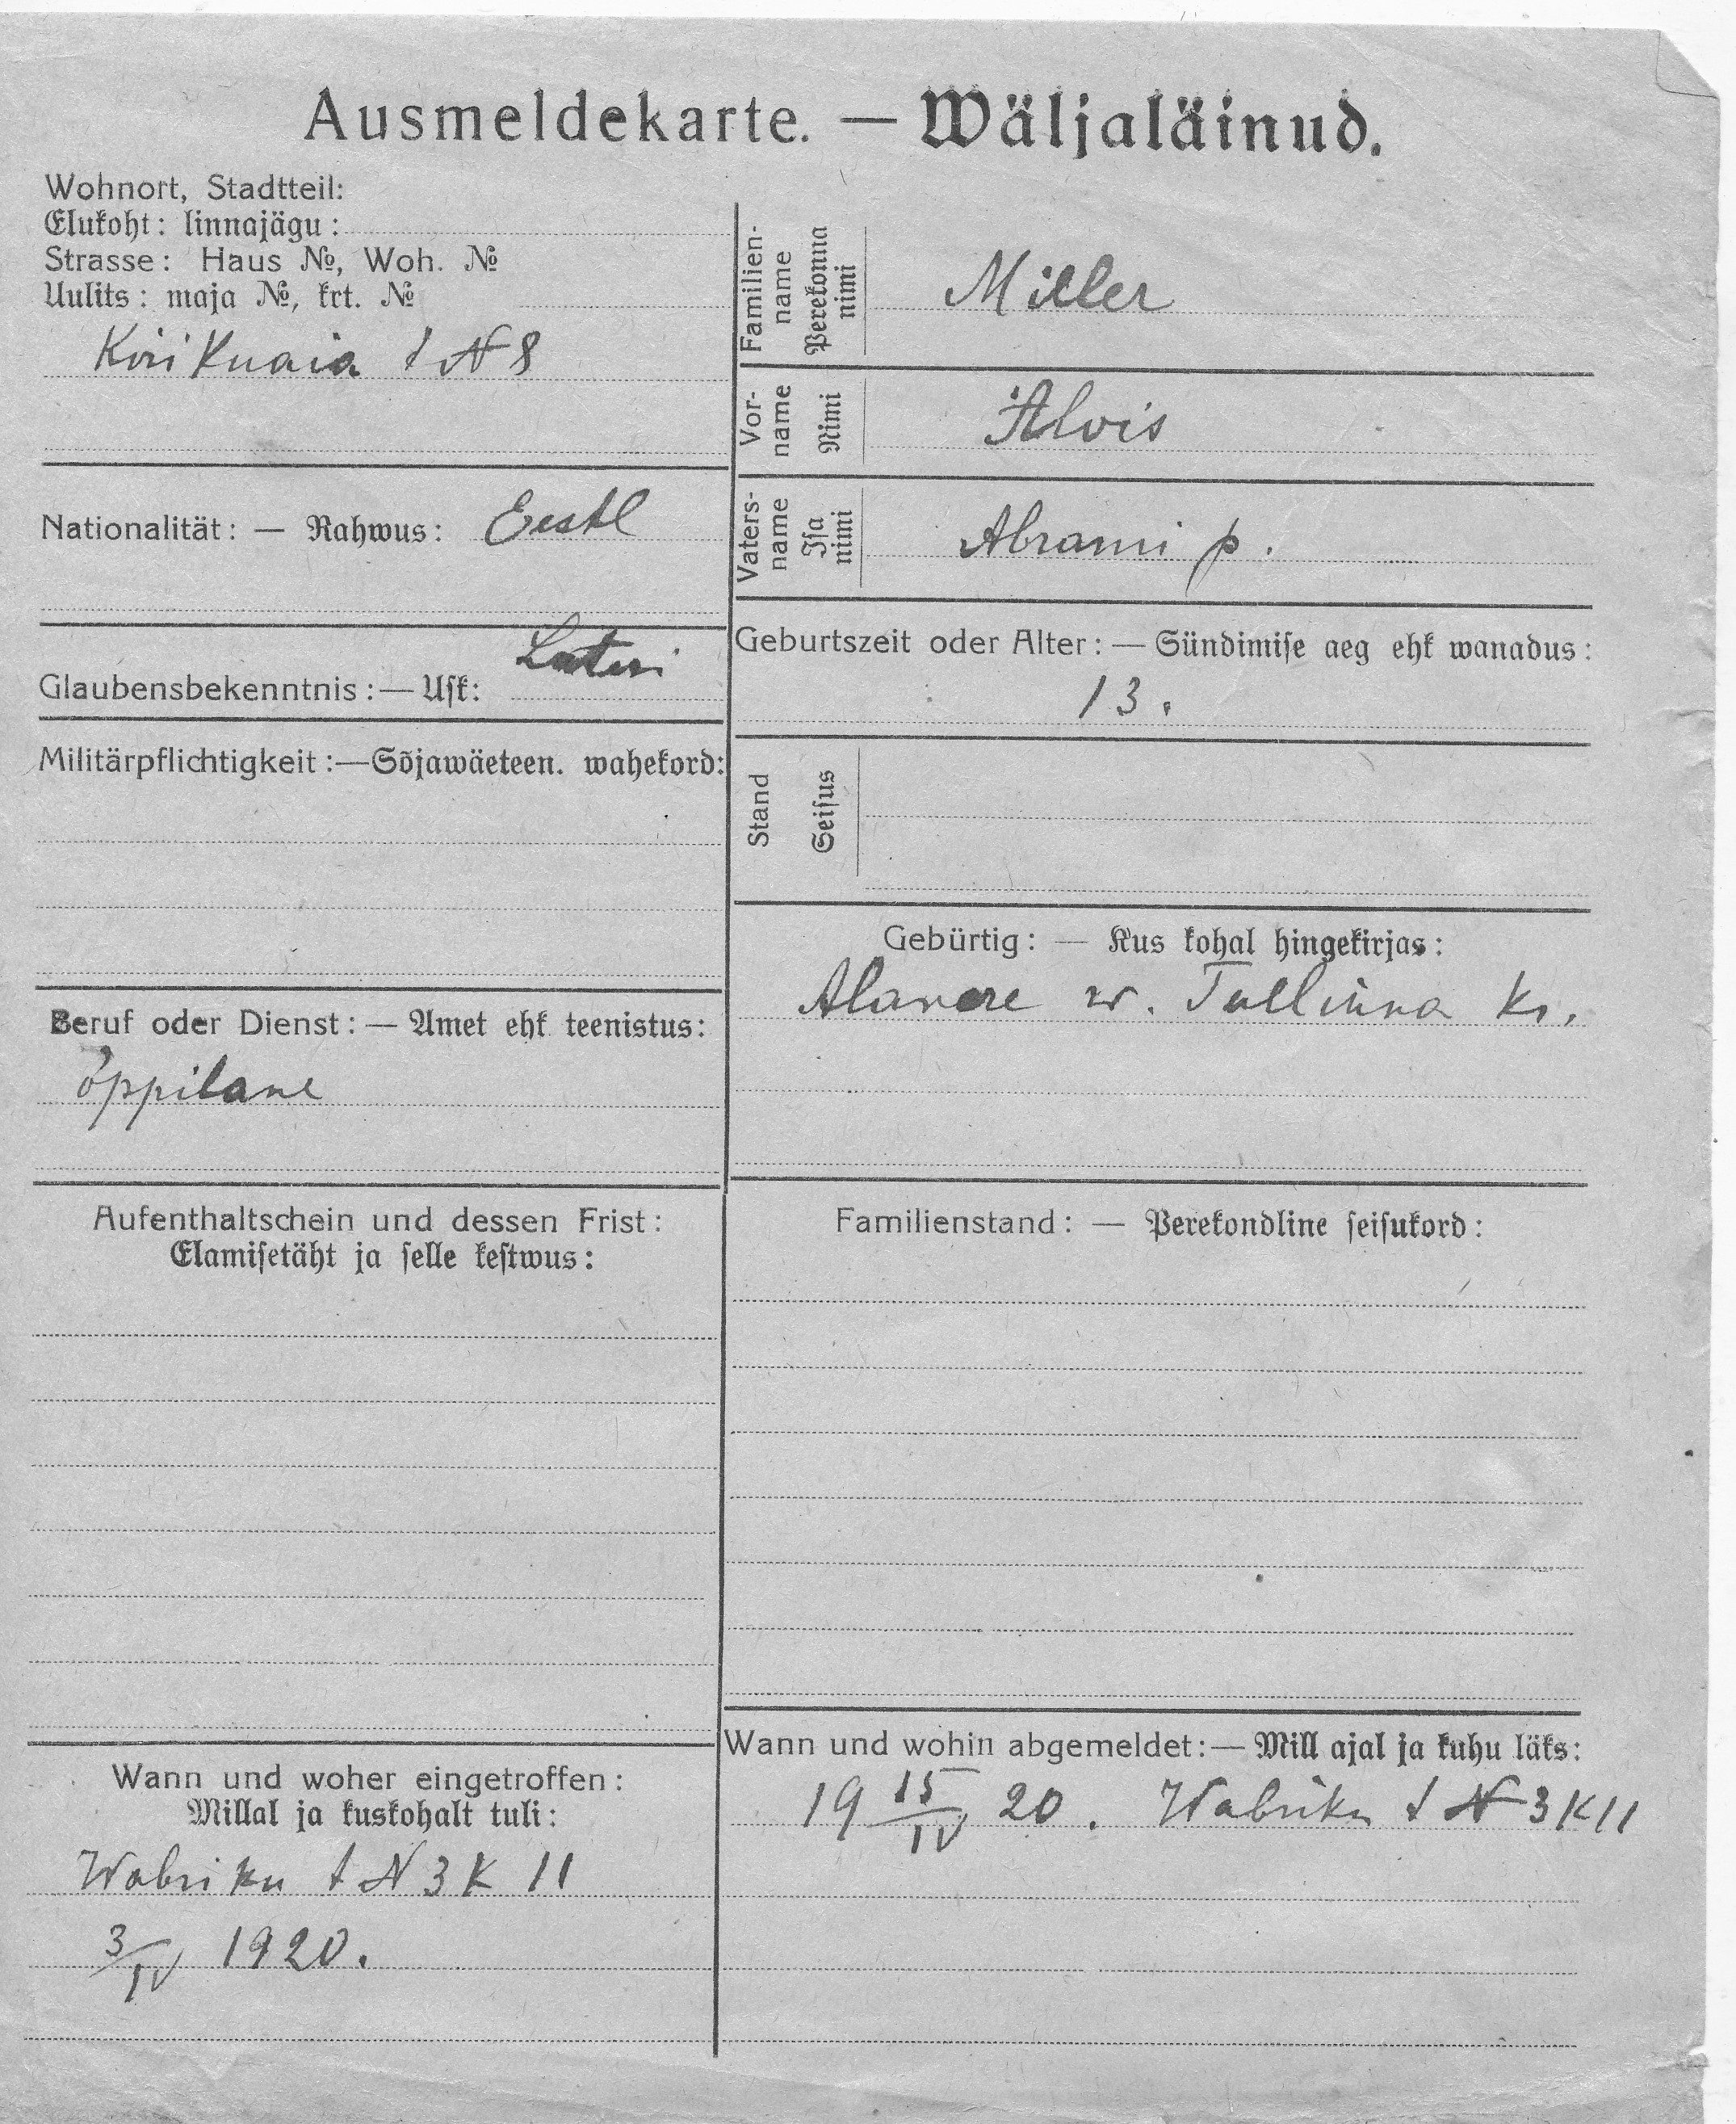 Ausmeldekarte. — Wäljaläinud.
Wohnort, Stadtteil:
Elukoht: linnajägu:
Strasse: Haus №, Woh. №
Uulits: maja №, krt. №
Kirikuaia t N 8
Nationalität: — Rahwus: Eestl
Glaubensbekenntnis: — Usk: Luteri
Militärpflichtigkeit: — Sõjawäeteen. wahekord:
Beruf oder Dienst: — Amet ehk teenistus:
õppilane
Aufenthaltschein und dessen Frist:
Elamisetäht ja selle kestwus:
Wann und woher eingetroffen:
Millal ja kuskohalt tuli:
Wabriku t N 3 K 11
3/IV 1920.
Familien-
name
Perekonna
nimi
Miller
Vor-
name
Nimi
Alvis
Vaters-
name
Isa
nimi
Abrami p.
Geburtszeit oder Alter: — Sündimise aeg ehk wanadus:
13.
Stand
Seisus
Gebürtig: — Kus kohal hingekirjas:
Alavere w. Tallinna kr.
Familienstand: — Perekondline seisukord:
Wann und wohin abgemeldet: — Mill ajal ja kuhu läks:
19 15/IV 20. Wabriku t N 3 K 11